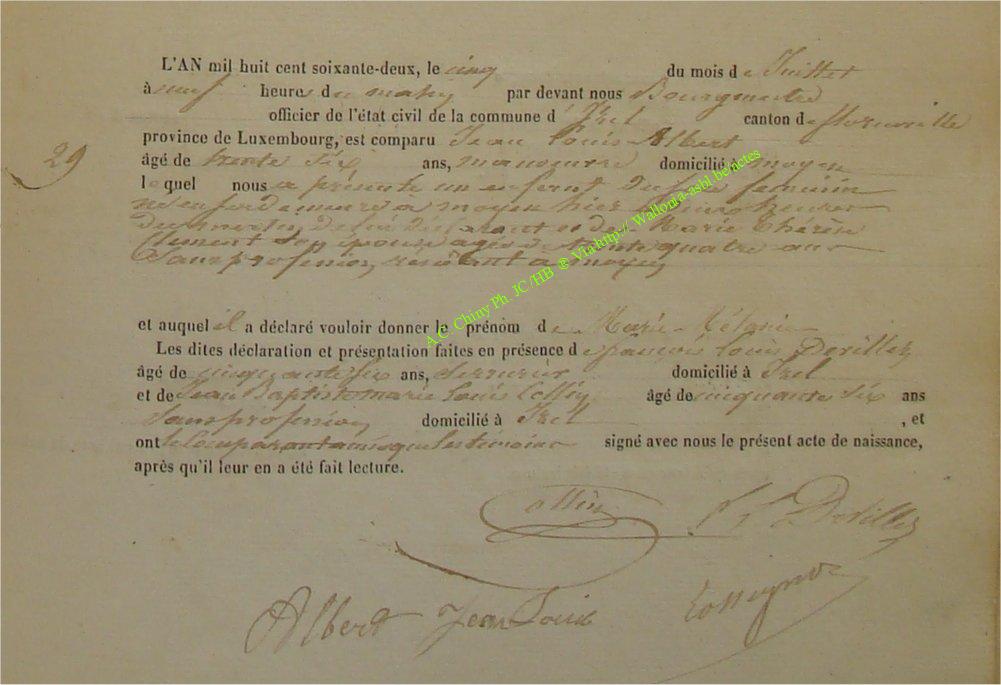 L'AN mil huit cent soixante-deux, le cinq du mois de Juillet
à neuf heures du matin par devant nous Bourgmestre
officier de l'état civil de la commune d'Izel canton de florenville
29
province de Luxembourg, est comparu Jean Louis Albert
âgé de trente six ans, manoeuvre domicilié à moyen
lequel nous a présenté un enfant du sexe feminin
né en sa demeure à moyen hier à heures
du matin, de lui déclarant et de Marie Thérèse
Clement son épouse agée de trente quatre ans
Sans profession, résidant à moyen
et auquel il a déclaré vouloir donner le prénom de Marie Mélanie
Les dites déclaration et présentation faites en présence de françois Louis Deville
âgé de cinquante six ans, Serrurier domicilié à Izel
et de Jean Baptiste marie Louis Collin âgé de cinquante six ans
Sans profession domicilié à Izel , et
ont le comparant ainsi que les témoins signé avec nous le présent acte de naissance,
après qu'il leur en a été fait lecture.
Collin
Albert Jean Louis
A.C. Chiny Ph. JC/HB ® Via http://Wallonia-asbl.be/actes